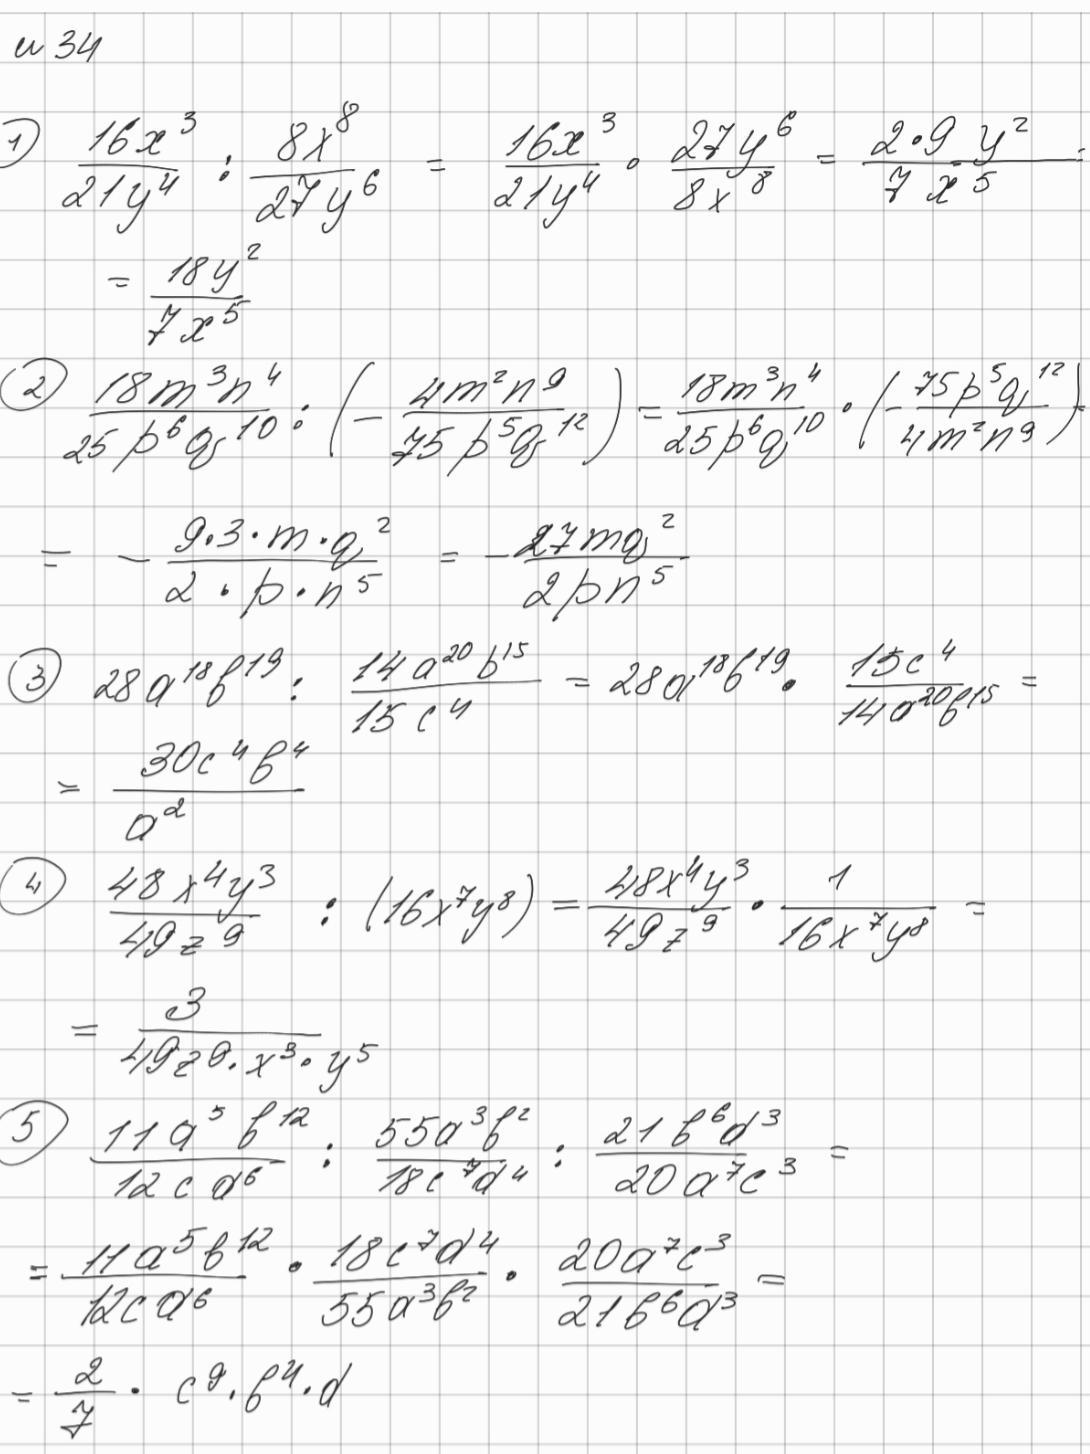 и 34
1) 16x³/21y⁴ : 8x⁸/27y⁶ = 16x³/21y⁴ · 27y⁶/8x⁸ = 2·9 y²/7 x⁵ =
= 18y²/7x⁵
2) 18m³n⁴/25p⁶q¹⁰ : (- 4m²n⁹/75p⁵q¹²) = 18m³n⁴/25p⁶q¹⁰ · (- 75p⁵q¹²/4m²n⁹) =
= - 9·3·m·q²/2·p·n⁵ = - 27mq²/2pn⁵
3) 28a¹⁸b¹⁹ : 14a²⁰b¹⁵/15c⁴ = 28a¹⁸b¹⁹ · 15c⁴/14a²⁰b¹⁵ =
= 30c⁴b⁴/a²
4) 48x⁴y³/49z⁹ : (16x⁷y⁸) = 48x⁴y³/49z⁹ · 1/16x⁷y⁸ =
= 3/49z⁹·x³·y⁵
5) 11a⁵b¹²/12cd⁶ : 55a³b²/18c⁷d⁴ : 21b⁶d³/20a⁷c³ =
= 11a⁵b¹²/12cd⁶ · 18c⁷d⁴/55a³b² · 20a⁷c³/21b⁶d³ =
= 2/7 · c⁹·b⁴·d